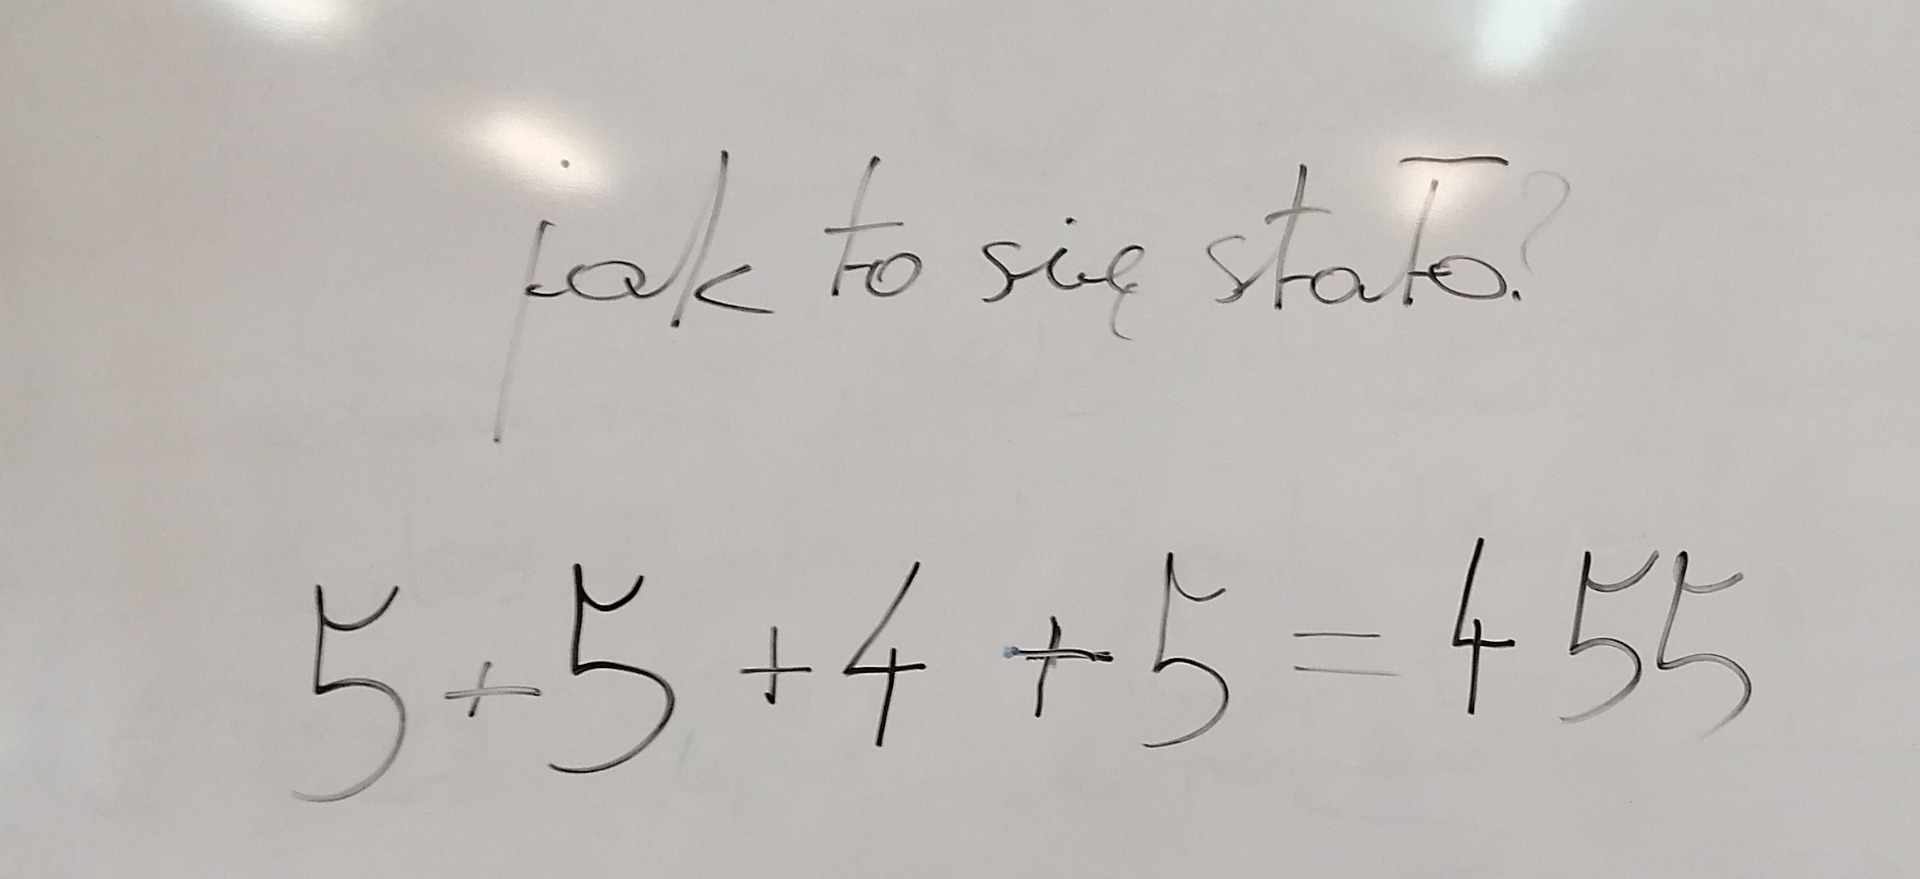 jak to się stało?
5+5+4+5=455